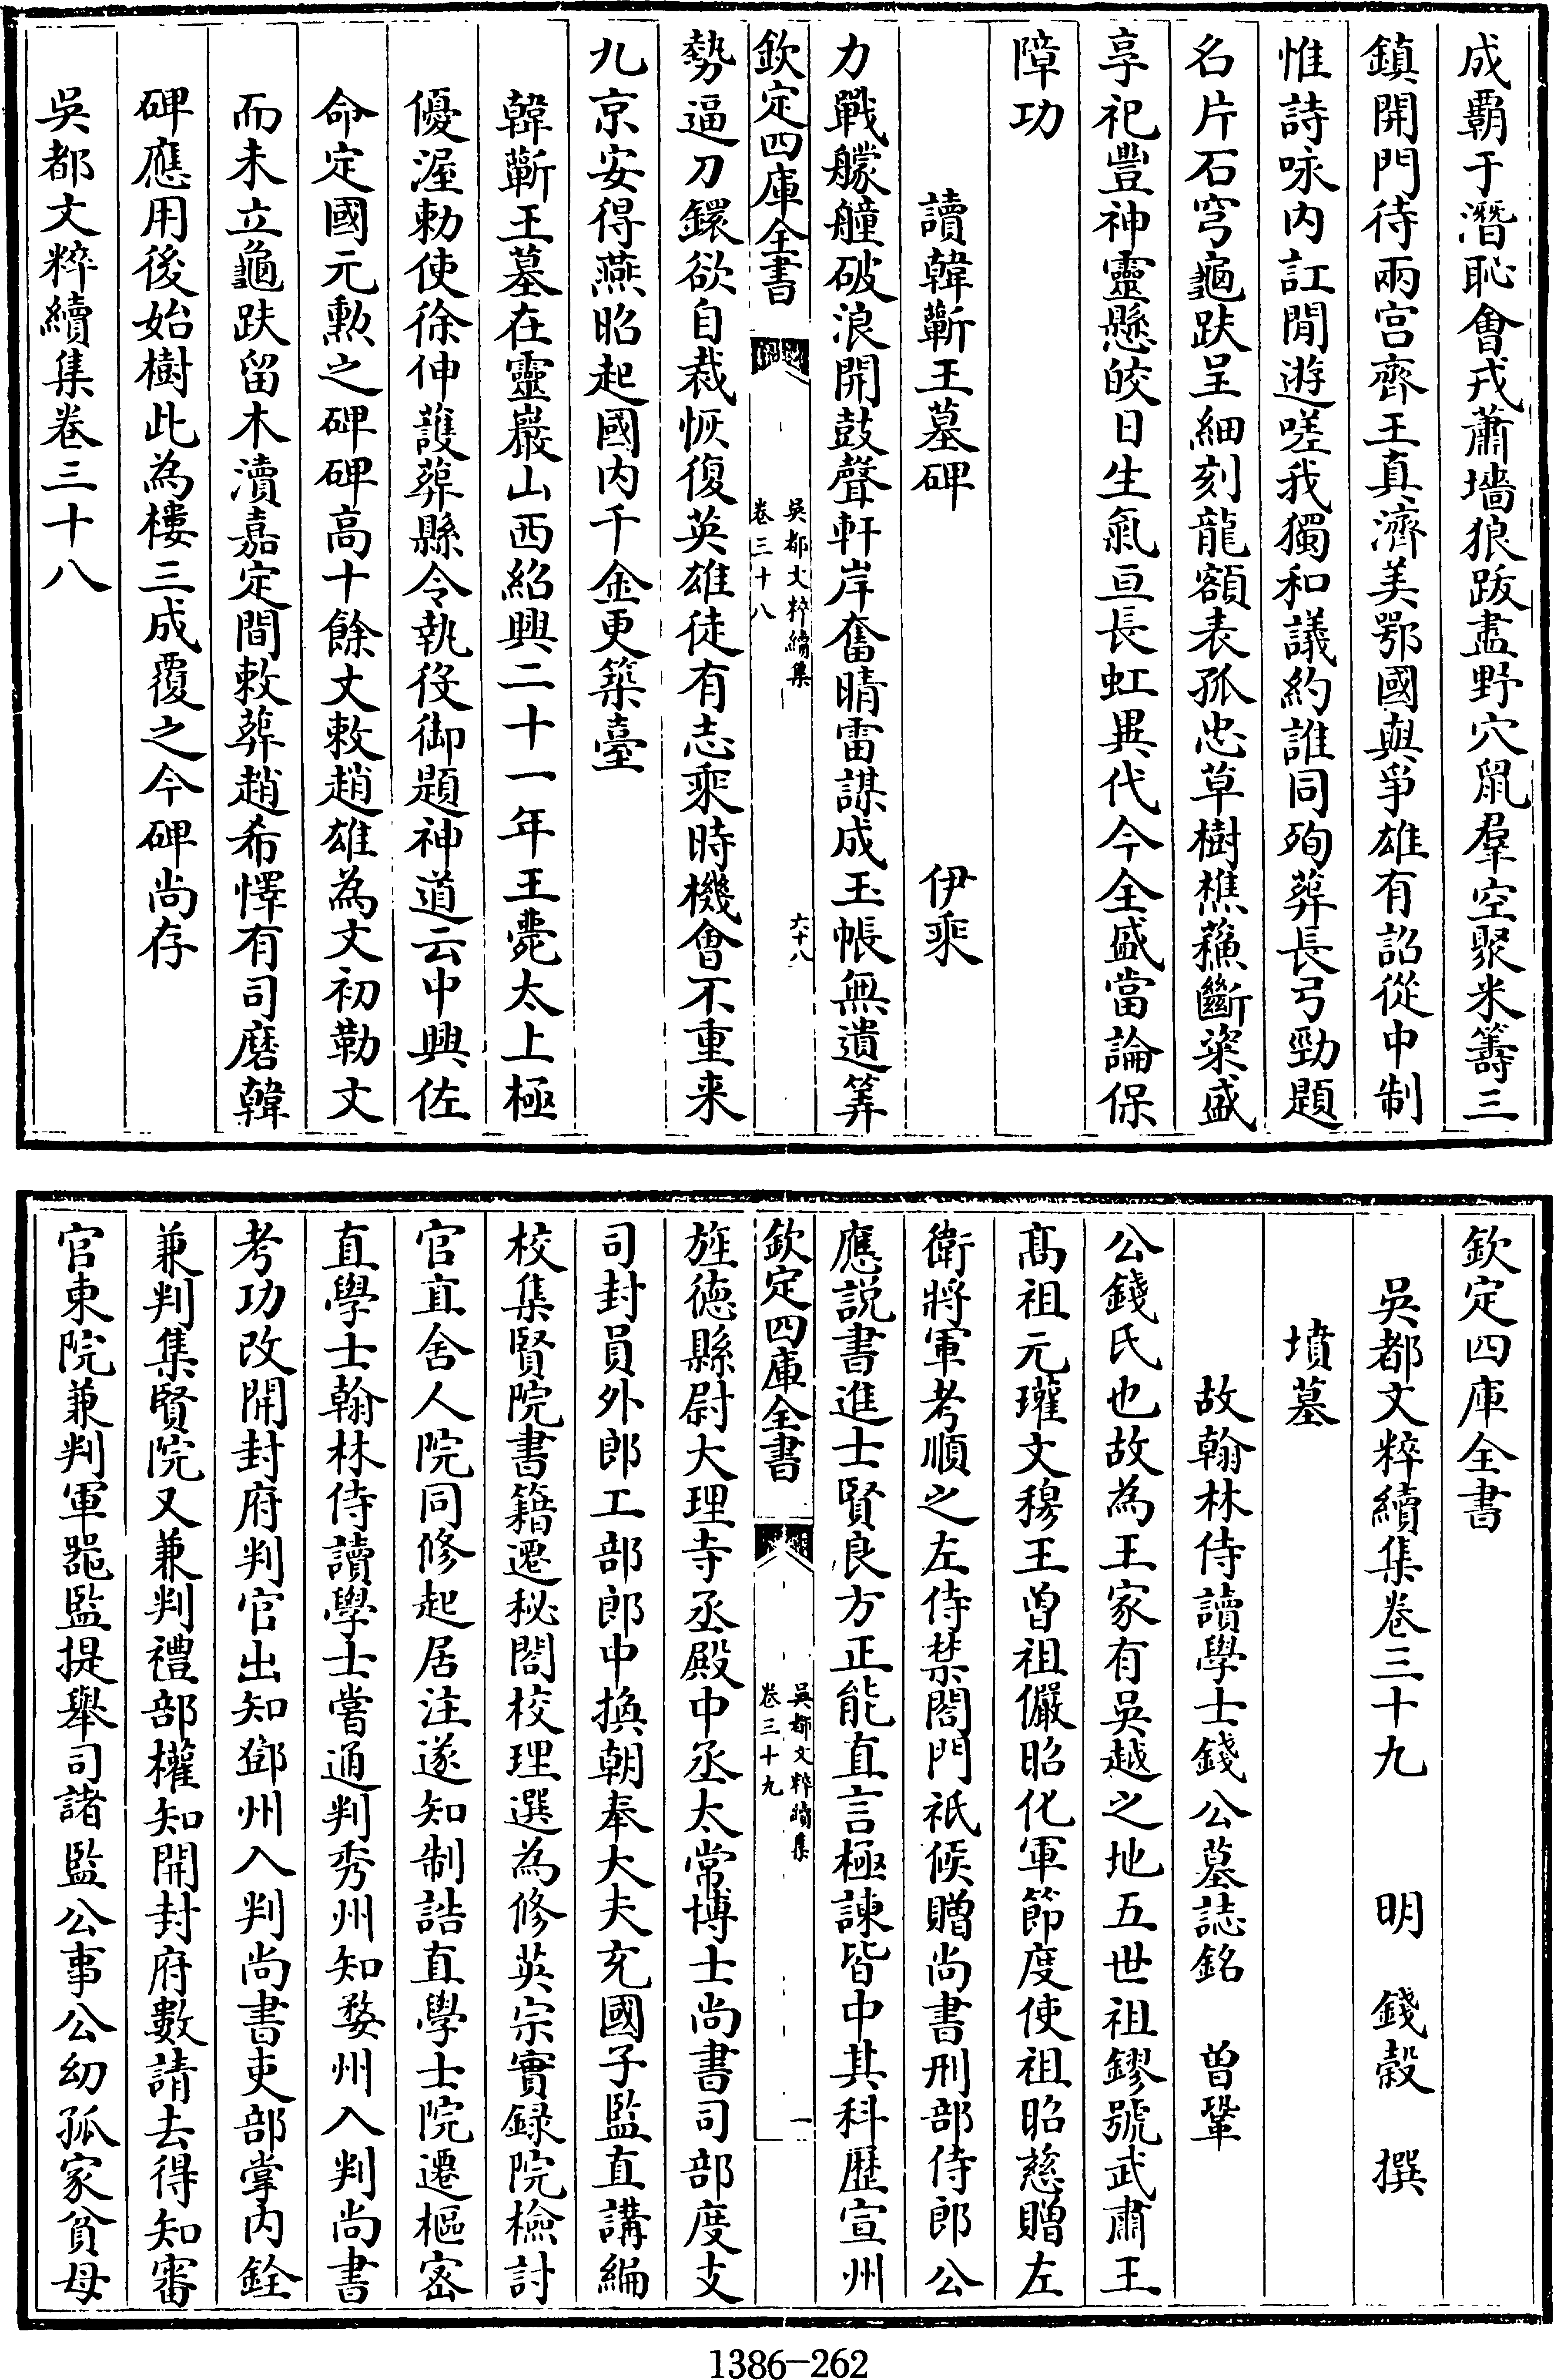 成覇于潛恥會戎蕭墻狼跋盡野穴鼠羣空聚米籌三
鎮開門待兩宫齊王真濟美鄂國與爭雄有詔從中制
惟詩咏内訌閒遊嗟我獨和議約誰同殉葬長弓勁題
名片石穹龜趺呈細刻龍額表孤忠草樹樵蘓斷粢盛
享祀豐神靈懸皎日生氣亘長虹異代今全盛當論保
障功
讀韓蘄王墓碑 伊乘
力戰艨艟破浪開鼓聲軒岸奮晴雷謀成玉帳無遺筭
欽定四庫全書 吳都文粹續集 卷三十八 六十八
勢逼刀鐶欲自裁恢復英雄徒有志乘時機會不重来
九京安得燕昭起國内千金更築臺
韓蘄王墓在靈巖山西紹興二十一年王薨太上極
優渥勅使徐伸護葬縣令執役御題神道云中興佐
命定國元勲之碑碑高十餘丈敕趙雄為文初勒文
而未立龜趺留木瀆嘉定間敕葬趙希懌有司磨韓
碑應用後始樹此為樓三成覆之今碑尚存
吳都文粹續集卷三十八
欽定四庫全書
吳都文粹續集卷三十九 明 錢榖 撰
墳墓
故翰林侍讀學士錢公墓誌銘 曾鞏
公錢氏也故為王家有吳越之地五世祖鏐號武肅王
髙祖元瓘文穆王曾祖儼昭化軍節度使祖昭慈贈左
衛將軍考順之左侍禁閤門祇候贈尚書刑部侍郎公
應説書進士賢良方正能直言極諫皆中其科歴宣州
欽定四庫全書 吳都文粹續集 卷三十九 一
旌德縣尉大理寺丞殿中丞太常博士尚書司部度支
司封員外郎工部郎中換朝奉大夫充國子監直講編
校集賢院書籍遷秘閣校理選為修英宗實録院檢討
官直舍人院同修起居注遂知制誥直學士院遷樞密
直學士翰林侍讀學士嘗通判秀州知婺州入判尚書
考功改開封府判官出知鄧州入判尚書吏部掌内銓
兼判集賢院又兼判禮部權知開封府數請去得知審
官東院兼判軍噐監提舉司諸監公事公幼孤家貧母
1386-262